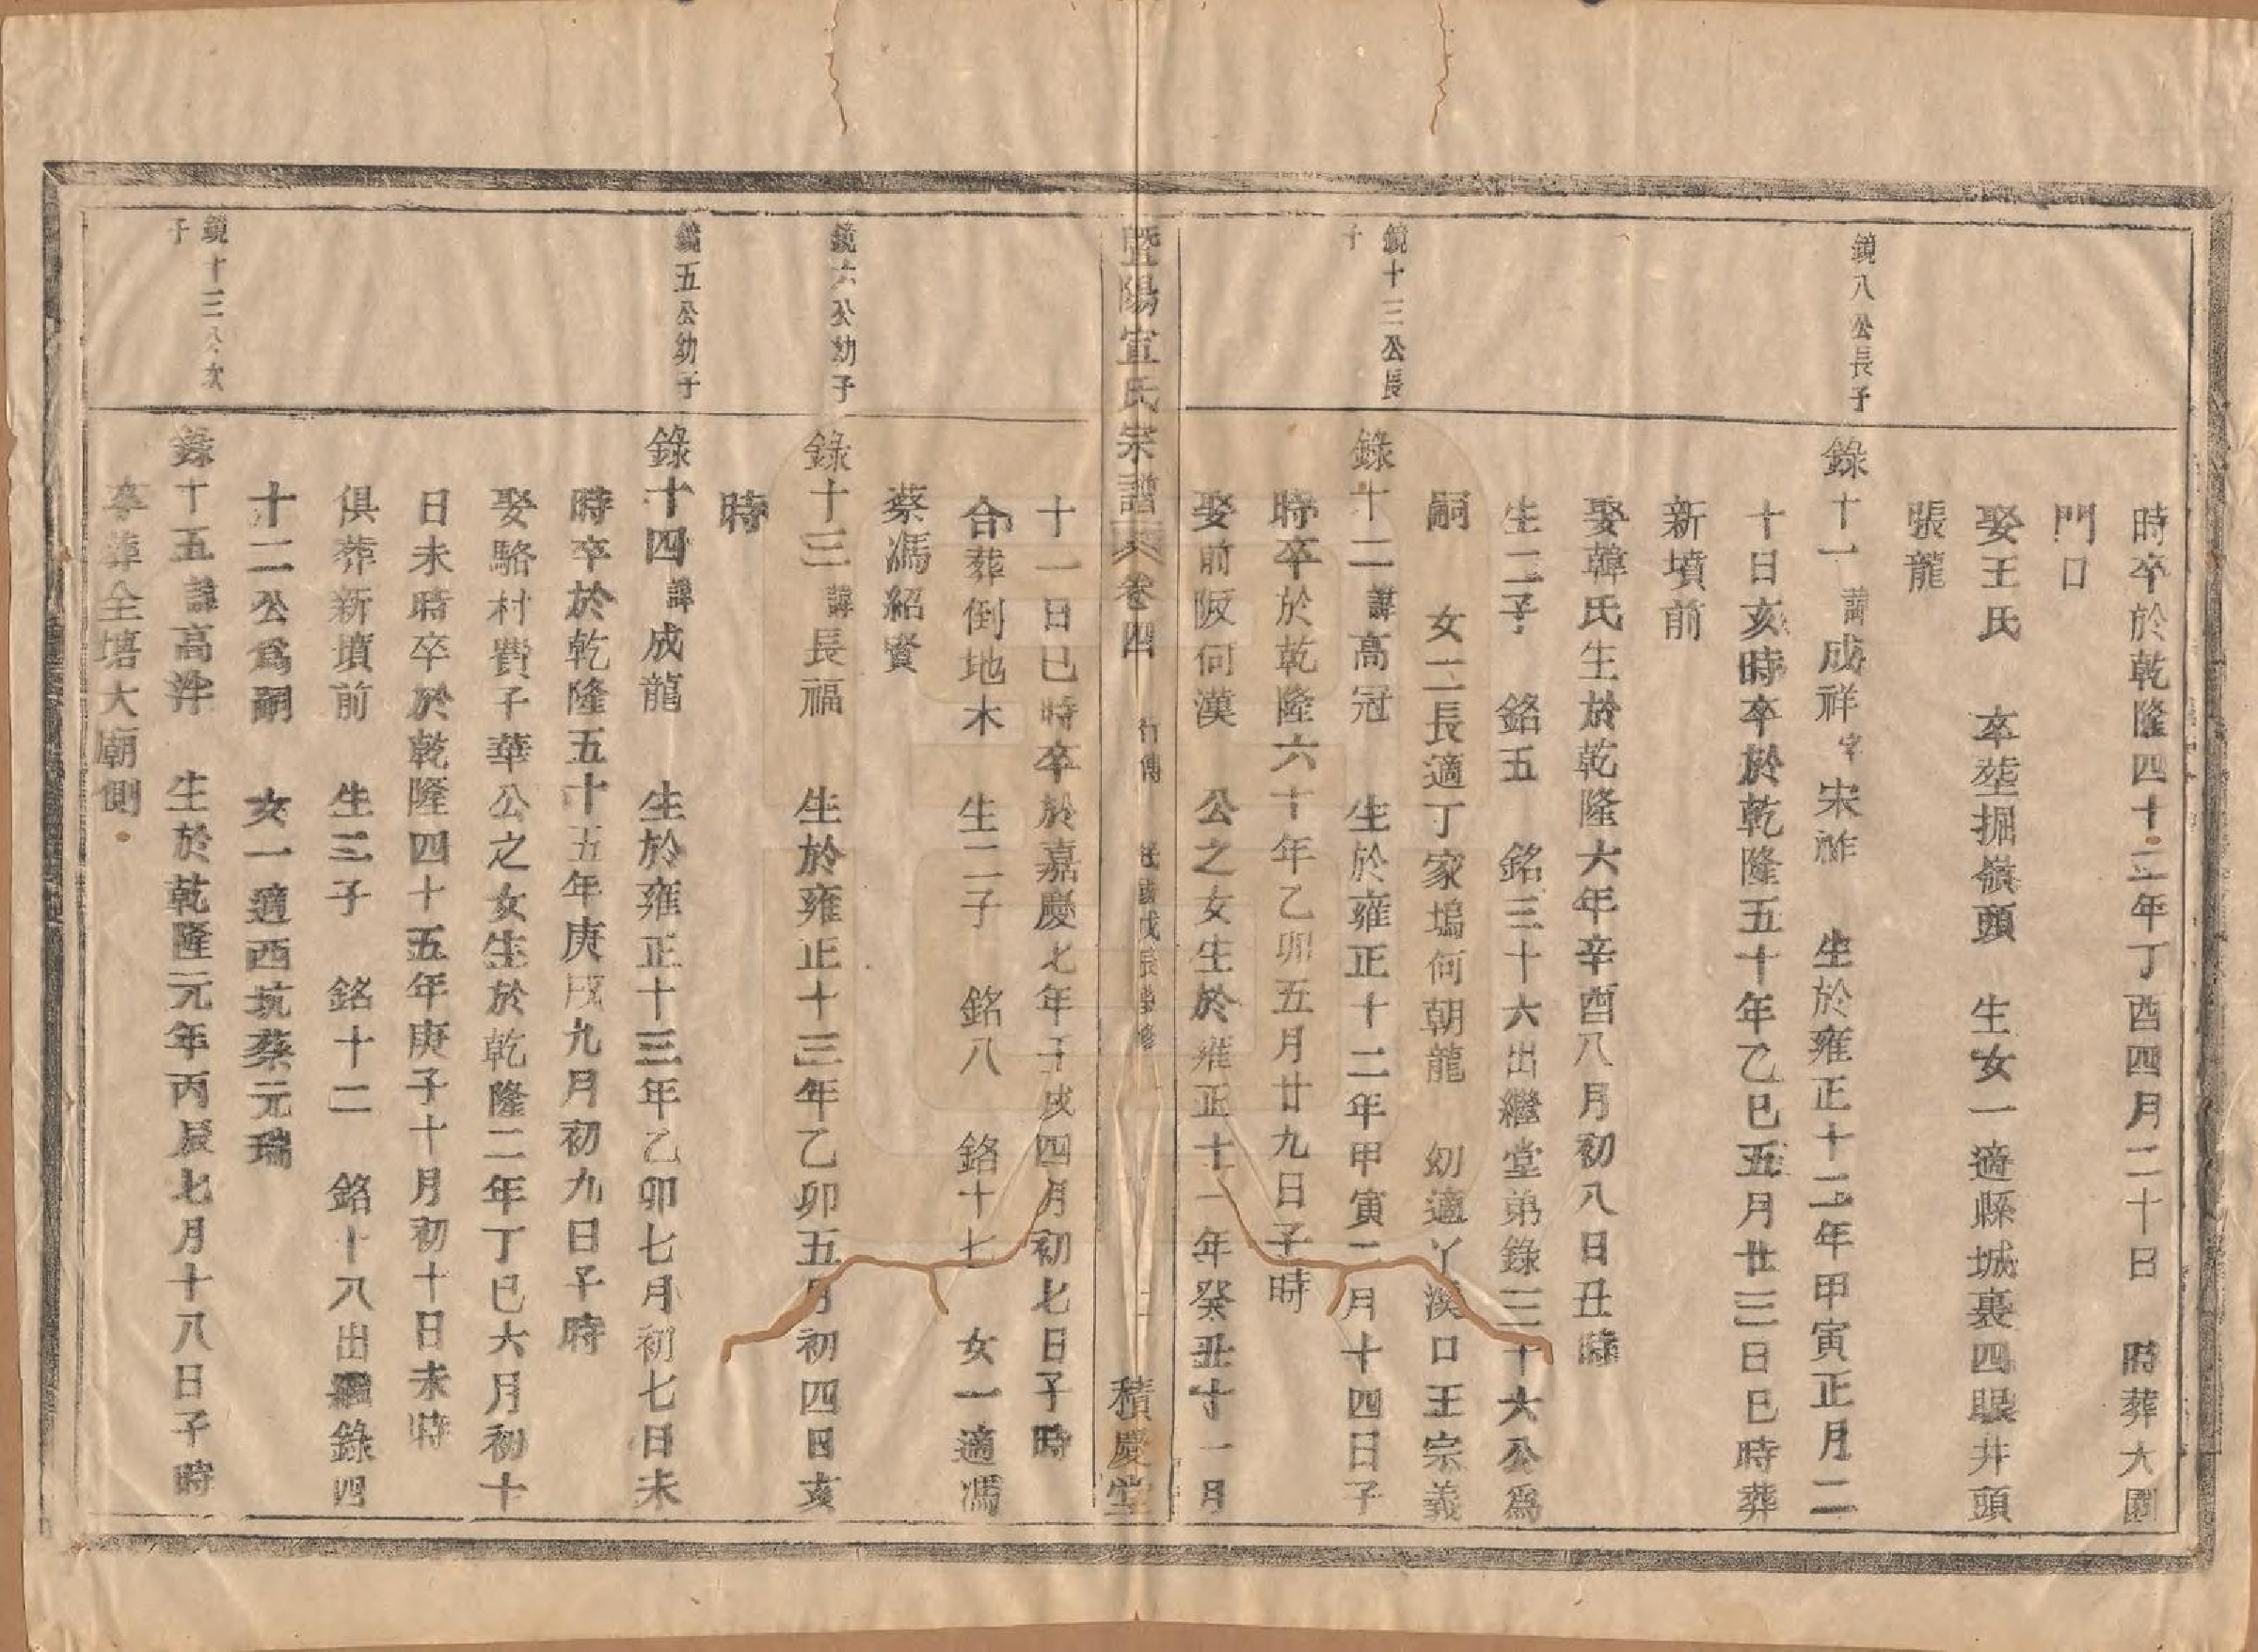 時卒於乾隆四十二年丁酉四月二十日 時葬大園
門口
娶王氏 卒塟掘嶺頭 生女一適縣城裏四眼井頭
張龍
鏡八公長子
錄十一諱成祥字宋祚 生於雍正十二年甲寅正月二
十日亥時卒於乾隆五十年乙巳五月廿三日巳時葬
新墳前
娶韓氏生於乾隆六年辛酉八月初八日丑時
生二子 銘五 銘三十六出繼堂弟錄三十六公爲
嗣 女二長適丁家塢何朝龍 幼適丫溪口王宗義
鏡十三公長
子
錄十二諱高冠 生於雍正十二年甲寅二月十四日子
時卒於乾隆六十年乙卯五月廿九日子時
娶前阪何漢 公之女生於雍正十一年癸丑十一月
暨陽宣氏宗譜 卷四 行傳 民國戊辰重修 二 積慶堂
十一日巳時卒於嘉慶七年壬戌四月初七日子時
合葬倒地木 生二子 銘八 銘十七 女一適馮
蔡馮紹賢
鏡六公幼子
錄十三諱長福 生於雍正十三年乙卯五月初四日亥
時
鏡五公幼子
錄十四諱成龍 生於雍正十三年乙卯七月初七日未
時卒於乾隆五十五年庚戌九月初九日子時
娶駱村費子華公之女生於乾隆二年丁巳六月初十
日未時卒於乾隆四十五年庚子十月初十日未時
俱葬新墳前 生三子 銘十二 銘十八出繼錄四
十二公爲嗣 女一適西坑蔡元瑞
鏡十三公次
子
錄十五諱高 生於乾隆元年丙辰七月十八日子時
卒葬全塔大廟側